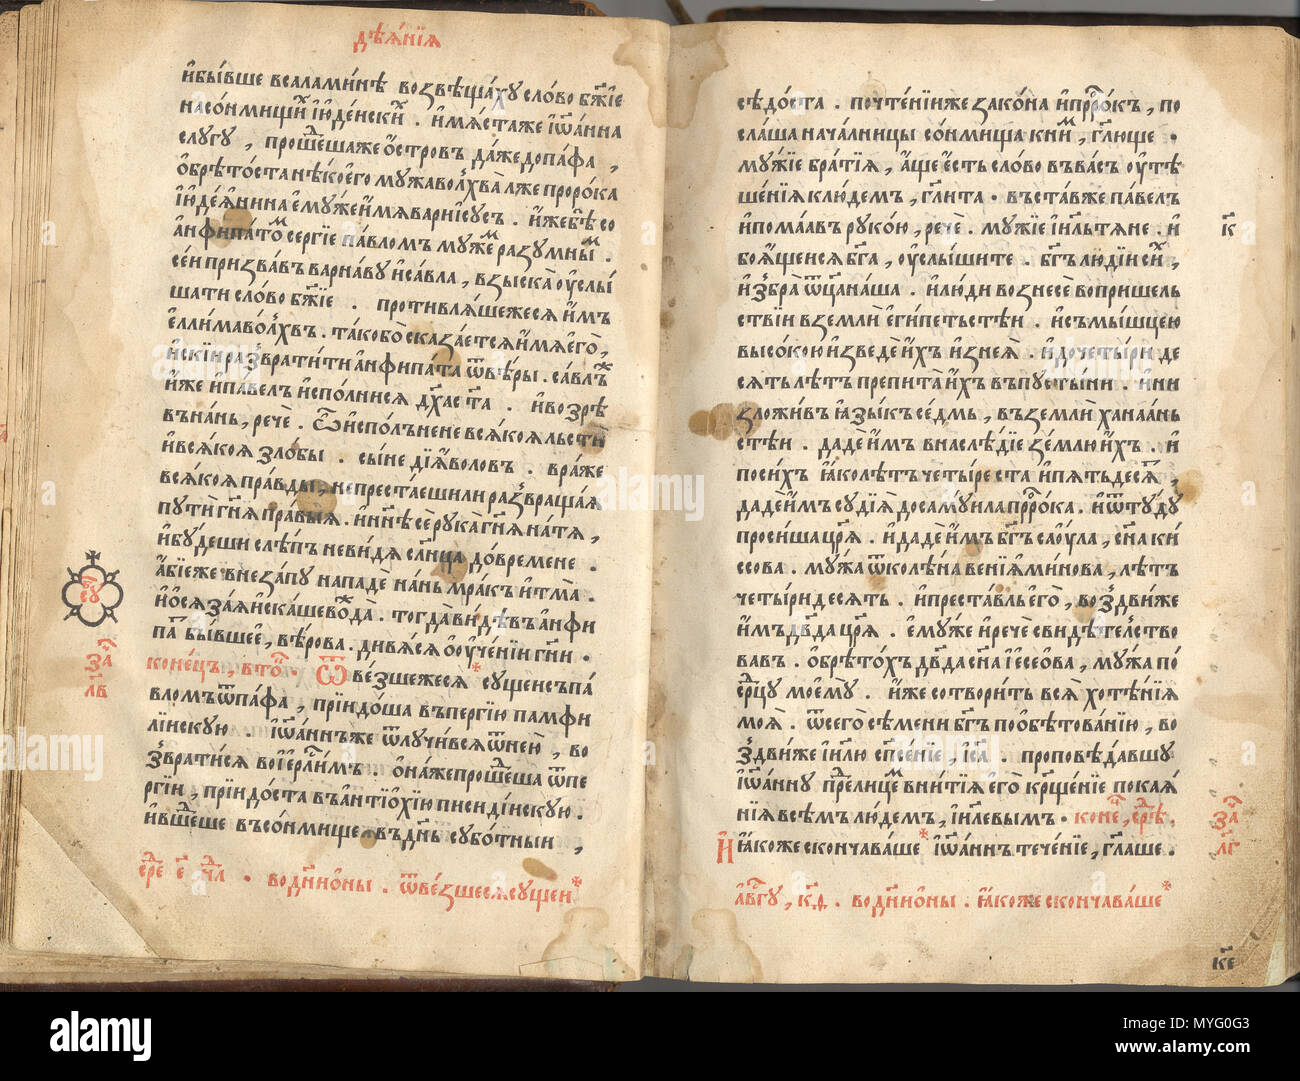 дѣѧ́нїѧ
и҆бы́вше всаламинѣ возвѣща́ху сло́во бж҃їе
насо́нмищи і҆ю҆де́йски . и҆мѧ́стаже і҆ѡ҆а́нна
слугу̀ , проше́дшаже о҆́стровъ да́жедопа́фа ,
ѡ҆брѣто́ста нѣ́коего му́жа волхва̀ лжепроро́ка
і҆ю҆де́ѧнина е҆му́же и҆́мѧ варїису́съ . и҆́жебѣ̀ со
а҆нфипа́томъ се́ргїе па́вломъ му́жемъ разу́мнымъ .
се́й призва́въ варна́ву и҆са́вла , взыска̀ ѹ҆слы́
шати сло́во бж҃їе . противлѧ́шежесѧ и҆́мъ
є҆ллима во́лхвъ . та́кобо ска́заетсѧ и҆́мѧ є҆го̀ ,
и҆скі́й разврати́ти а҆нфипа́та ѿвѣ́ры . са́влъ
и҆́же и҆па́велъ и҆спо́лнисѧ дх҃а ст҃а . и҆возрѣ́
въна́нь , речѐ . ѽ и҆спо́лънене всѧ́коѧ льсти
и҆всѧ́коѧ зло́бы . сы́не дїѧ́волов . вра́же
всѧ́коѧ пра́вды , непреста́еши ли развраща́ѧ
путѝ гн҃ѧ пра́выѧ . и҆нн҃ѣ сѐ рука̀ гн҃ѧ натѧ̀ ,
и҆бу́деши слѣ́пъ неви́дѧ сл҃нца до́времене .
а҆́бїеже внеза́пу нападѐ на́нь мра́къ и҆тма̀ .
и҆ѡ҆сѧза́ѧ и҆ска́ше вожда̀ . тогда̀ ви́дѣвъ а҆нфи
па́т бы́вшее , вѣ́рова . дивѧ́сѧ ѡ҆ѹ҆че́нїи гн҃и .
коне́цъ , вто . Ѿве́зшежесѧ су́щеи съпа́
вломъ ѿпа́фа , прїидо́ша въперги́ю памфи
лі́йскую . і҆ѡ҆а́ннъже ѿлучи́всѧ ѿне́ю , во
зврати́сѧ воі҆ерⷭ҇ли́мъ . ѻ҆на́же проше́дша ѿпе
ргі́и , прїидо́ста въа҆нтїохі́ю писиді́йскую .
и҆вше́дше въсо́нмище въде́нь суббо́тныи ,
сре є҃ нл . водн҃и ѻ҆́ны . ѿве́зшесѧ су́щеи
ѕ҃ су
за
лв
сѣдо́ста . почте́нїиже зако́на и҆прⷪ҇ро́къ , по
сла́ша нача́лницы со́нмища книⷨ , гл҃юще .
му́жїе бра́тїѧ , а҆́ще є҆́сть сло́во въва́съ ѹ҆тѣ
ше́нїѧ клю́демъ , гл҃ита . въста́вже па́велъ
и҆пома́авъ руко́ю , речѐ . му́жїе і҆и҃льтѧне . и҆
боѧ́щеисѧ бг҃а , ѹ҆слы́шите . бг҃ъ лю́дїи си́х ,
и҆збра̀ ѿц҃а на́ша . и҆лю́ди вознесѐ вопришель
стви́и вземлѝ є҆ги́петьстѣи . и҆съмы́шцею
высо́кою и҆зведѐ и҆́хъ и҆знеѧ̀ . и҆дочеты́ри де
сѧть лѣ́тъ препита̀ и҆́хъ въпусты́ни . и҆ни
зложи́въ ꙗ҆зы́къ се́дмь , въземлѝ ханаа́нь
стѣ́и . дадѐ и҆́мъ внаслѣ́дїе зе́млю и҆́хъ . и҆
поси́хъ ꙗ҆́ко лѣ́тъ четы́реста и҆пѧтьдесѧ́т ,
дадѐ и҆́мъ судїѧ̀ досамуи́ла прⷪ҇ро́ка . и҆ѿту́ду
проси́ша цр҃ѧ̀ . и҆дадѐ и҆́мъ бг҃ъ сао́ула , сн҃а ки
ссова . му́жа ѿколѣ́на венїѧми́нова , лѣ́тъ
четы́ридесѧть . и҆преста́вль є҆го̀ , воздви́же
и҆́мъ дв҃да цр҃ѧ̀ . є҆му́же и҆речѐ свидѣ́телство
вавъ . ѡ҆брѣто́хъ дв҃да сн҃а і҆ессе́ова , му́жа по
ср҃цу моему̀ . и҆́же сотвори́тъ всѧ̀ хотѣ́нїѧ
моѧ̀ . ѿ сего̀ сѣ́мени бг҃ъ поѡбѣтова́нїю , во
здви́же і҆и҃лю сп҃се́нїе , і҆с҃а . проповѣ́давшу
і҆ѡ҆а́нну прⷣелице́мъ вни́тїѧ є҆го̀ крⷭ҇ще́нїе покаѧ́
нїѧ всѣ́мъ лю́демъ , і҆и҃левымъ . коне , сре .
И ꙗ҆́коже сконча́ваше і҆ѡ҆а́ннъ тече́нїе , гл҃аше .
а҆́вгу , кд . водн҃и ѻ҆́ны . ꙗ҆́коже сконча́ваше
к҃
за
лг
к҃е